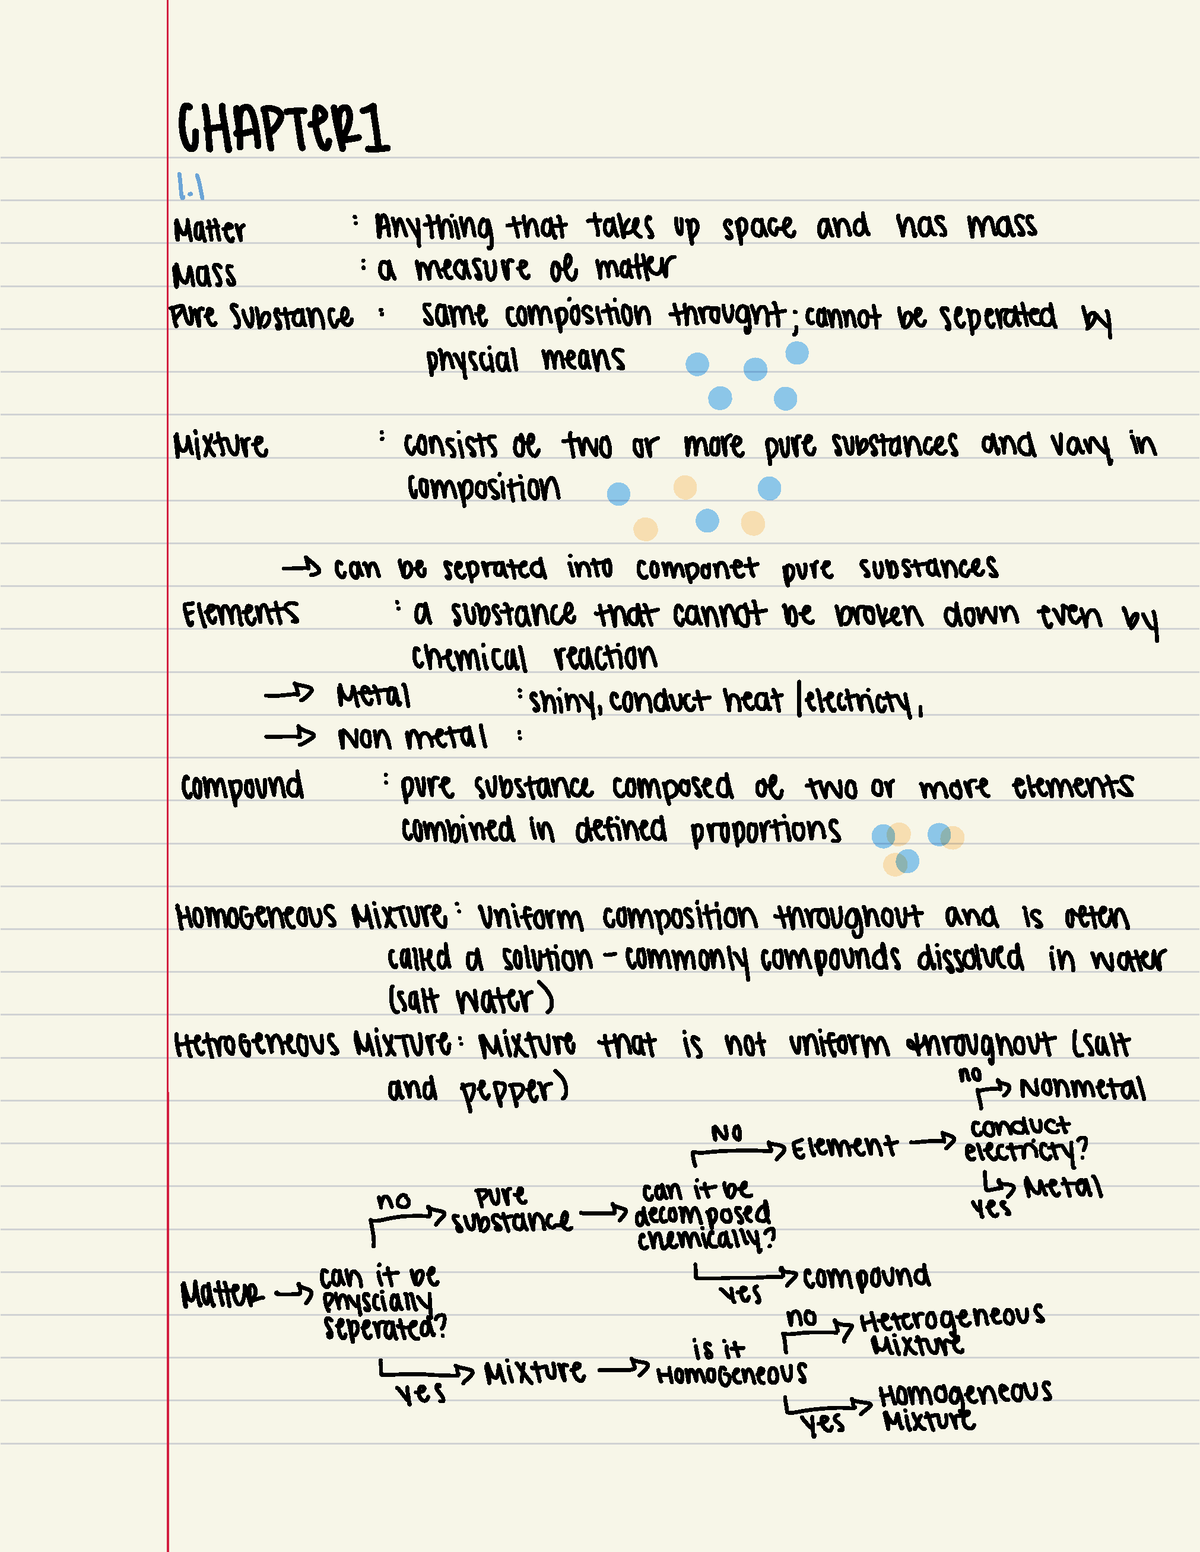 CHAPTER 1
1.1
Matter : Anything that takes up space and has mass
Mass : a measure of matter
Pure Substance : same composition throught; cannot be seperated by
physcial means
Mixture : consists of two or more pure substances and vary in
composition
→ can be seprated into componet pure substances
Elements : a substance that cannot be broken down even by
chemical reaction
→ Metal : shiny, conduct heat | electricty,
→ Non metal :
Compound : pure substance composed of two or more elements
combined in defined proportions
Homogeneous Mixture : Uniform composition throughout and is often
called a solution - commonly compounds dissolved in water
(salt water)
Hetrogeneous Mixture : Mixture that is not uniform throughout (salt
and pepper)
no → Nonmetal
NO → Element → conduct
electricty?
yes → Metal
no → Pure
substance → can it be
decomposed
chemically?
yes → compound
Matter → can it be
physcially
seperated?
yes → Mixture → is it
Homogeneous
no → Heterogeneous
Mixture
yes → Homogeneous
Mixture